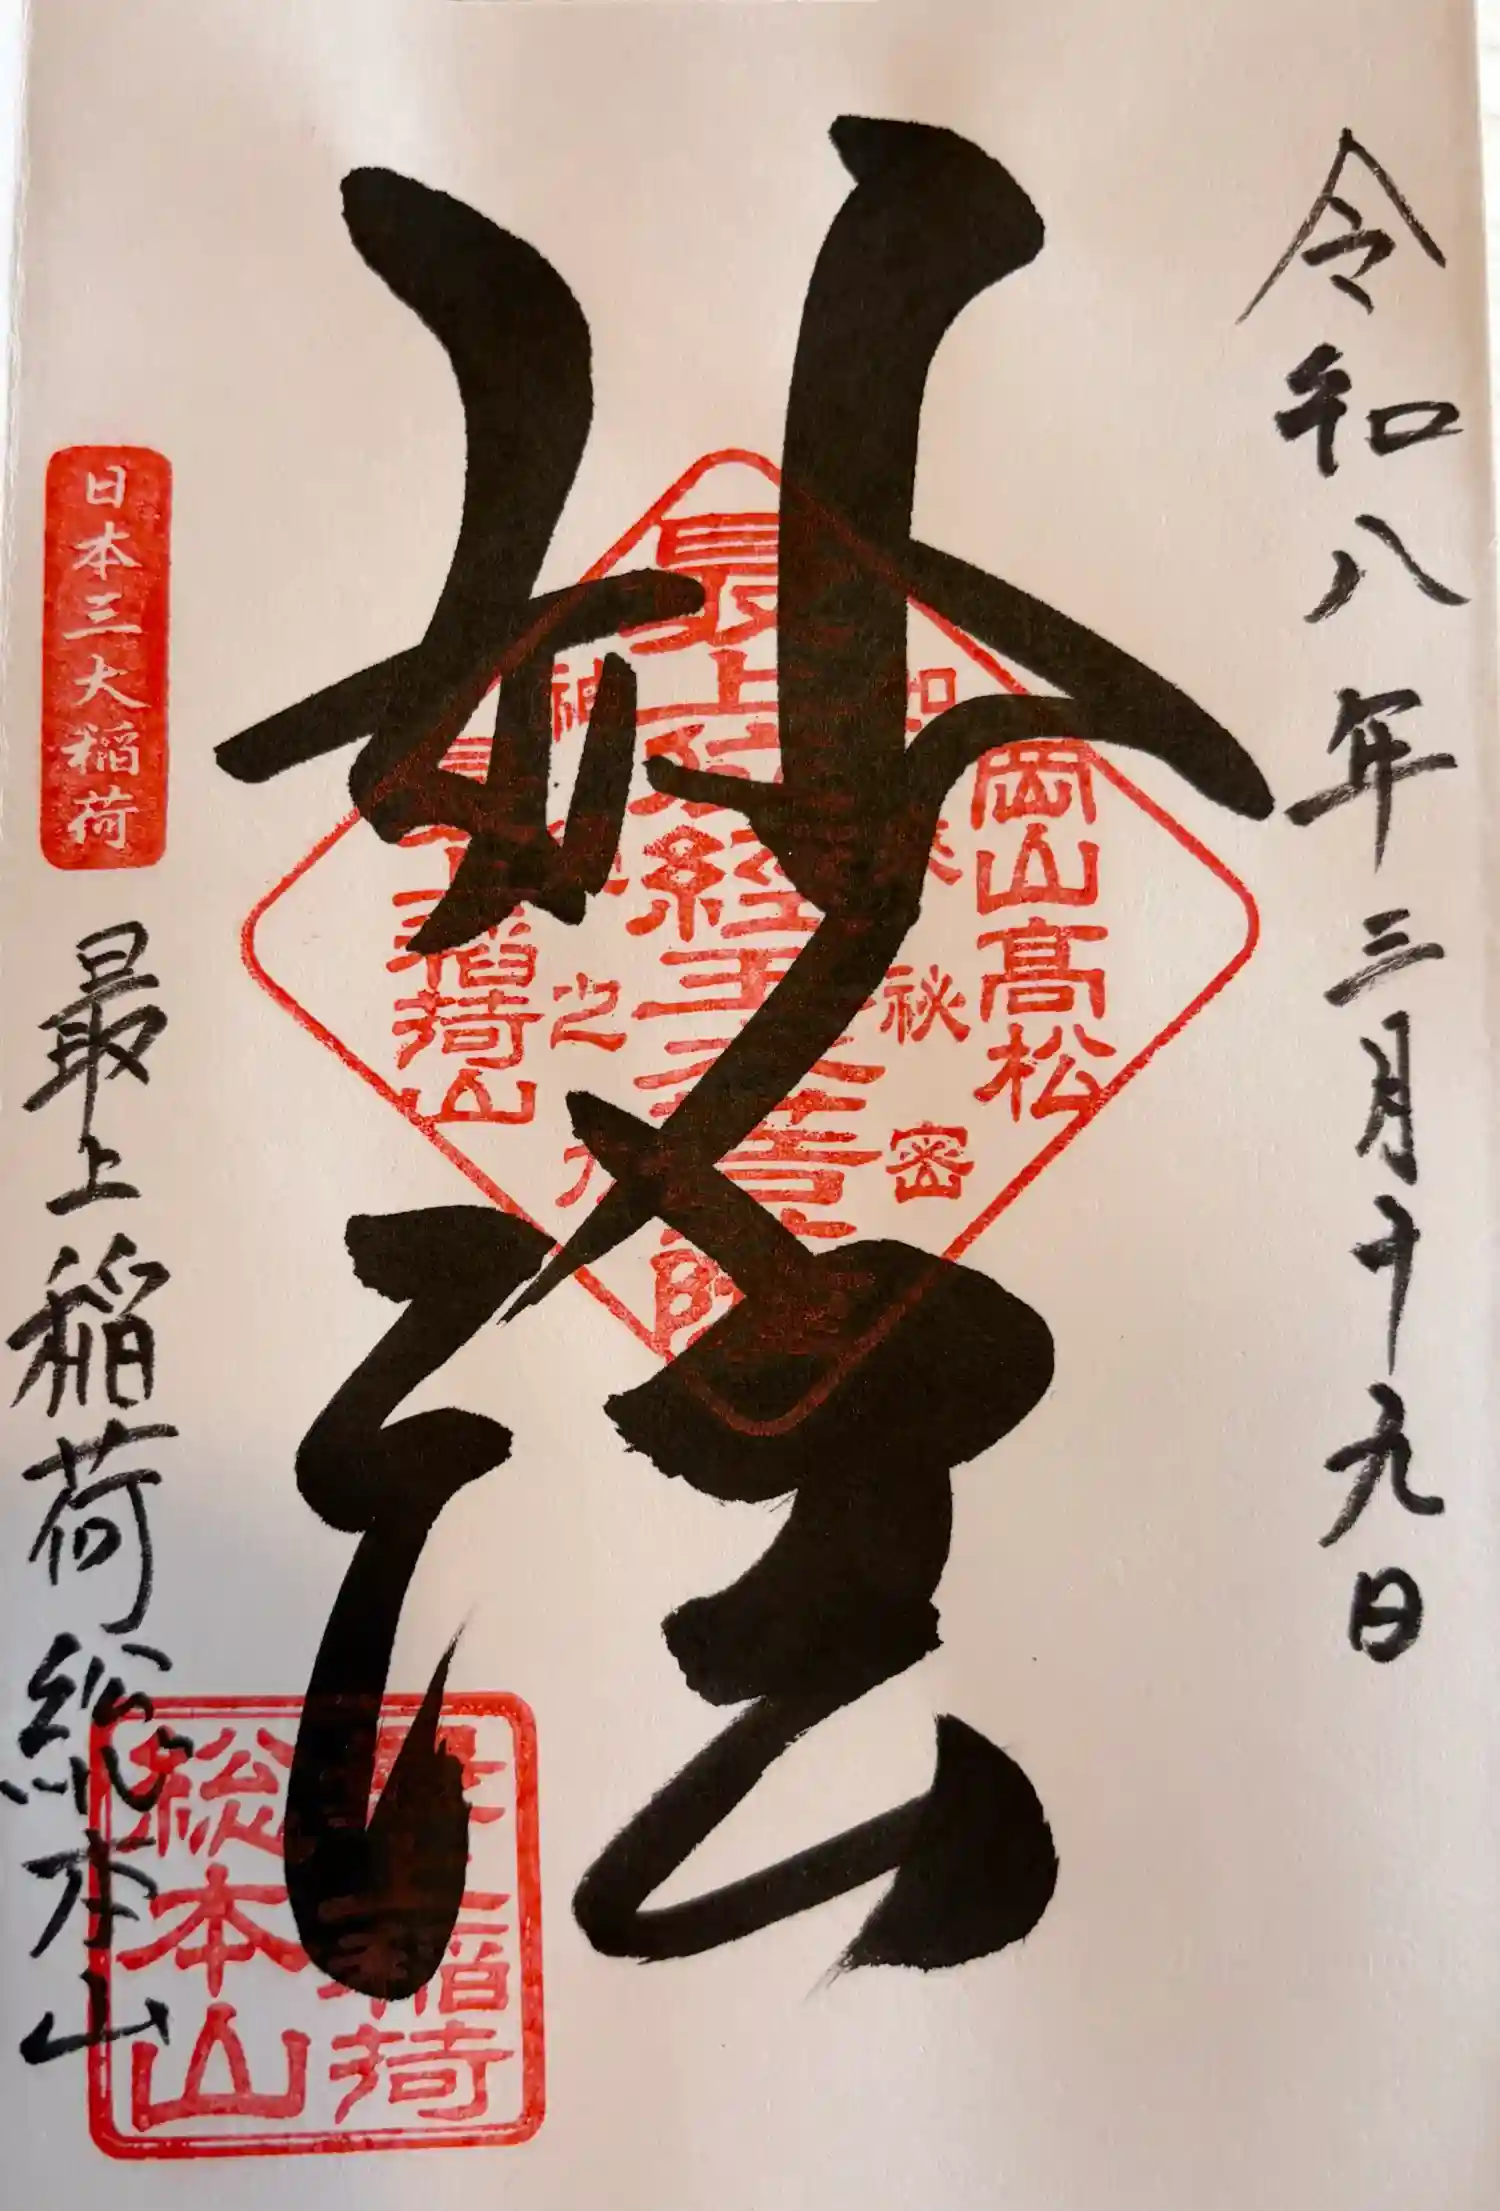 令和八年三月十九日
妙法
岡山高松
如来秘密
最上位経王大菩薩
神通之力
最上稲荷山
日本三大稲荷
最上稲荷総本山
最上稲荷
総本山